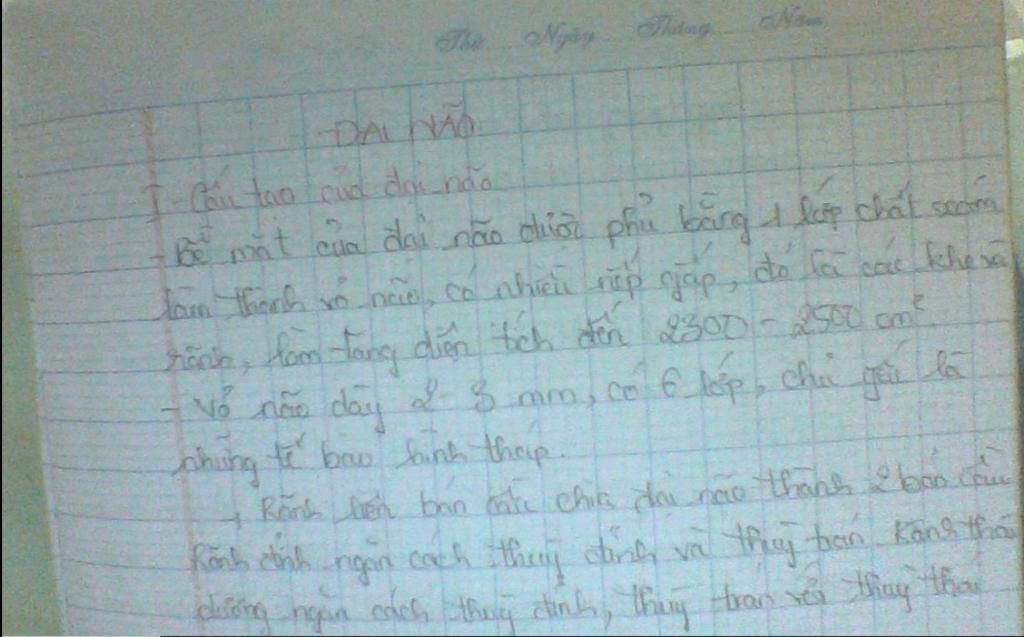 Thứ Ngày Tháng Năm
ĐẠI NÃO
I - Cấu tạo của đại não
- Bề mặt của đại não được phủ bằng 1 lớp chất xám
làm thành vỏ não, có nhiều nếp gấp, đó là các khe và
rãnh, làm tăng diện tích đến 2300 - 2500 cm²
- Vỏ não dày 2 - 3 mm, có 6 lớp, chủ yếu là
những tế bào hình tháp.
→ Rãnh liên bán cầu chia đại não thành 2 bán cầu
Rãnh đỉnh ngăn cách thuỳ đỉnh và thuỳ trán Rãnh thái
dương ngăn cách thuỳ đỉnh, thuỳ trán với thuỳ thái